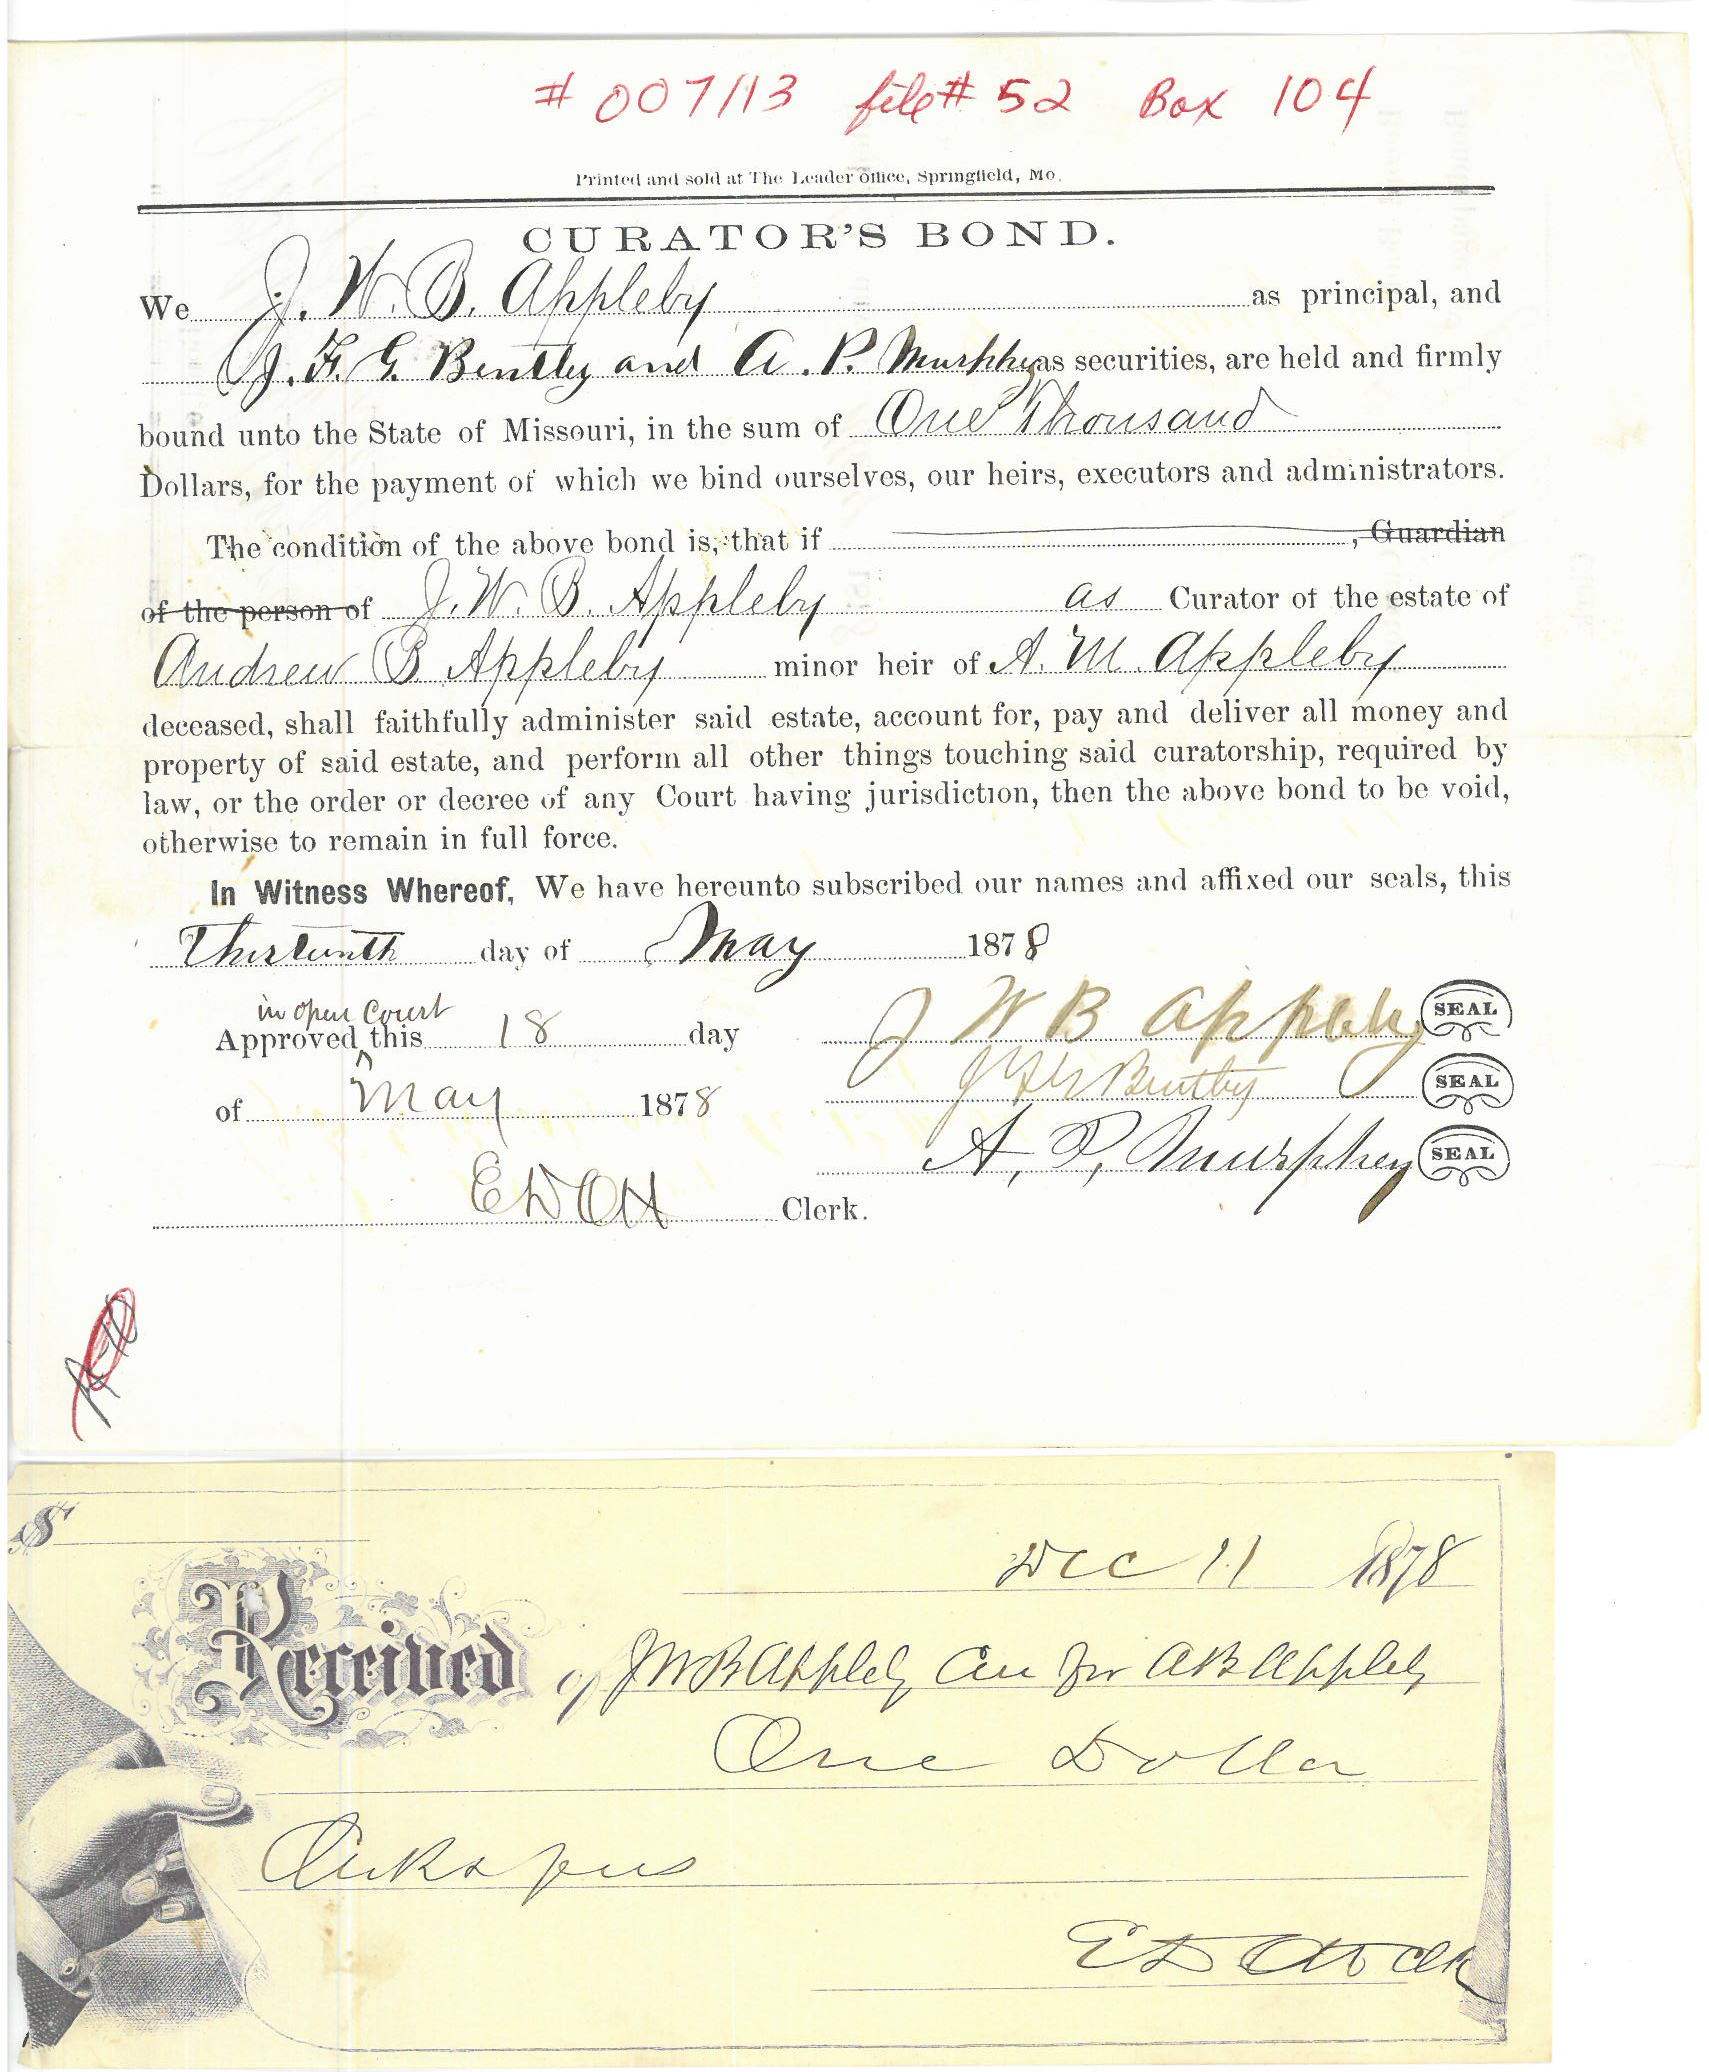 # 007113 file# 52 Box 104
Printed and sold at The Leader office, Springfield, Mo.
CURATOR'S BOND.
We J. W. B. Appleby as principal, and
J. F. G. Bentley and A. P. Murphy as securities, are held and firmly
bound unto the State of Missouri, in the sum of One Thousand
Dollars, for the payment of which we bind ourselves, our heirs, executors and administrators.
The condition of the above bond is, that if , Guardian
of the person of of J. W. B. Appleby as Curator of the estate of
Andrew B Appleby minor heir of A. M. Appleby
deceased, shall faithfully administer said estate, account for, pay and deliver all money and
property of said estate, and perform all other things touching said curatorship, required by
law, or the order or decree of any Court having jurisdiction, then the above bond to be void,
otherwise to remain in full force.
In Witness Whereof, We have hereunto subscribed our names and affixed our seals, this
Thirteenth day of May 1878
in open Court
Approved this 18 day
of May 1878
J W B Appleby SEAL
J F G Bentley SEAL
A. P. Murphey SEAL
E D Ott Clerk.
$
Dec 11 1878
Received of J W B Appleby Cu for A B Appleby
One Dollar
E D Ott Clk